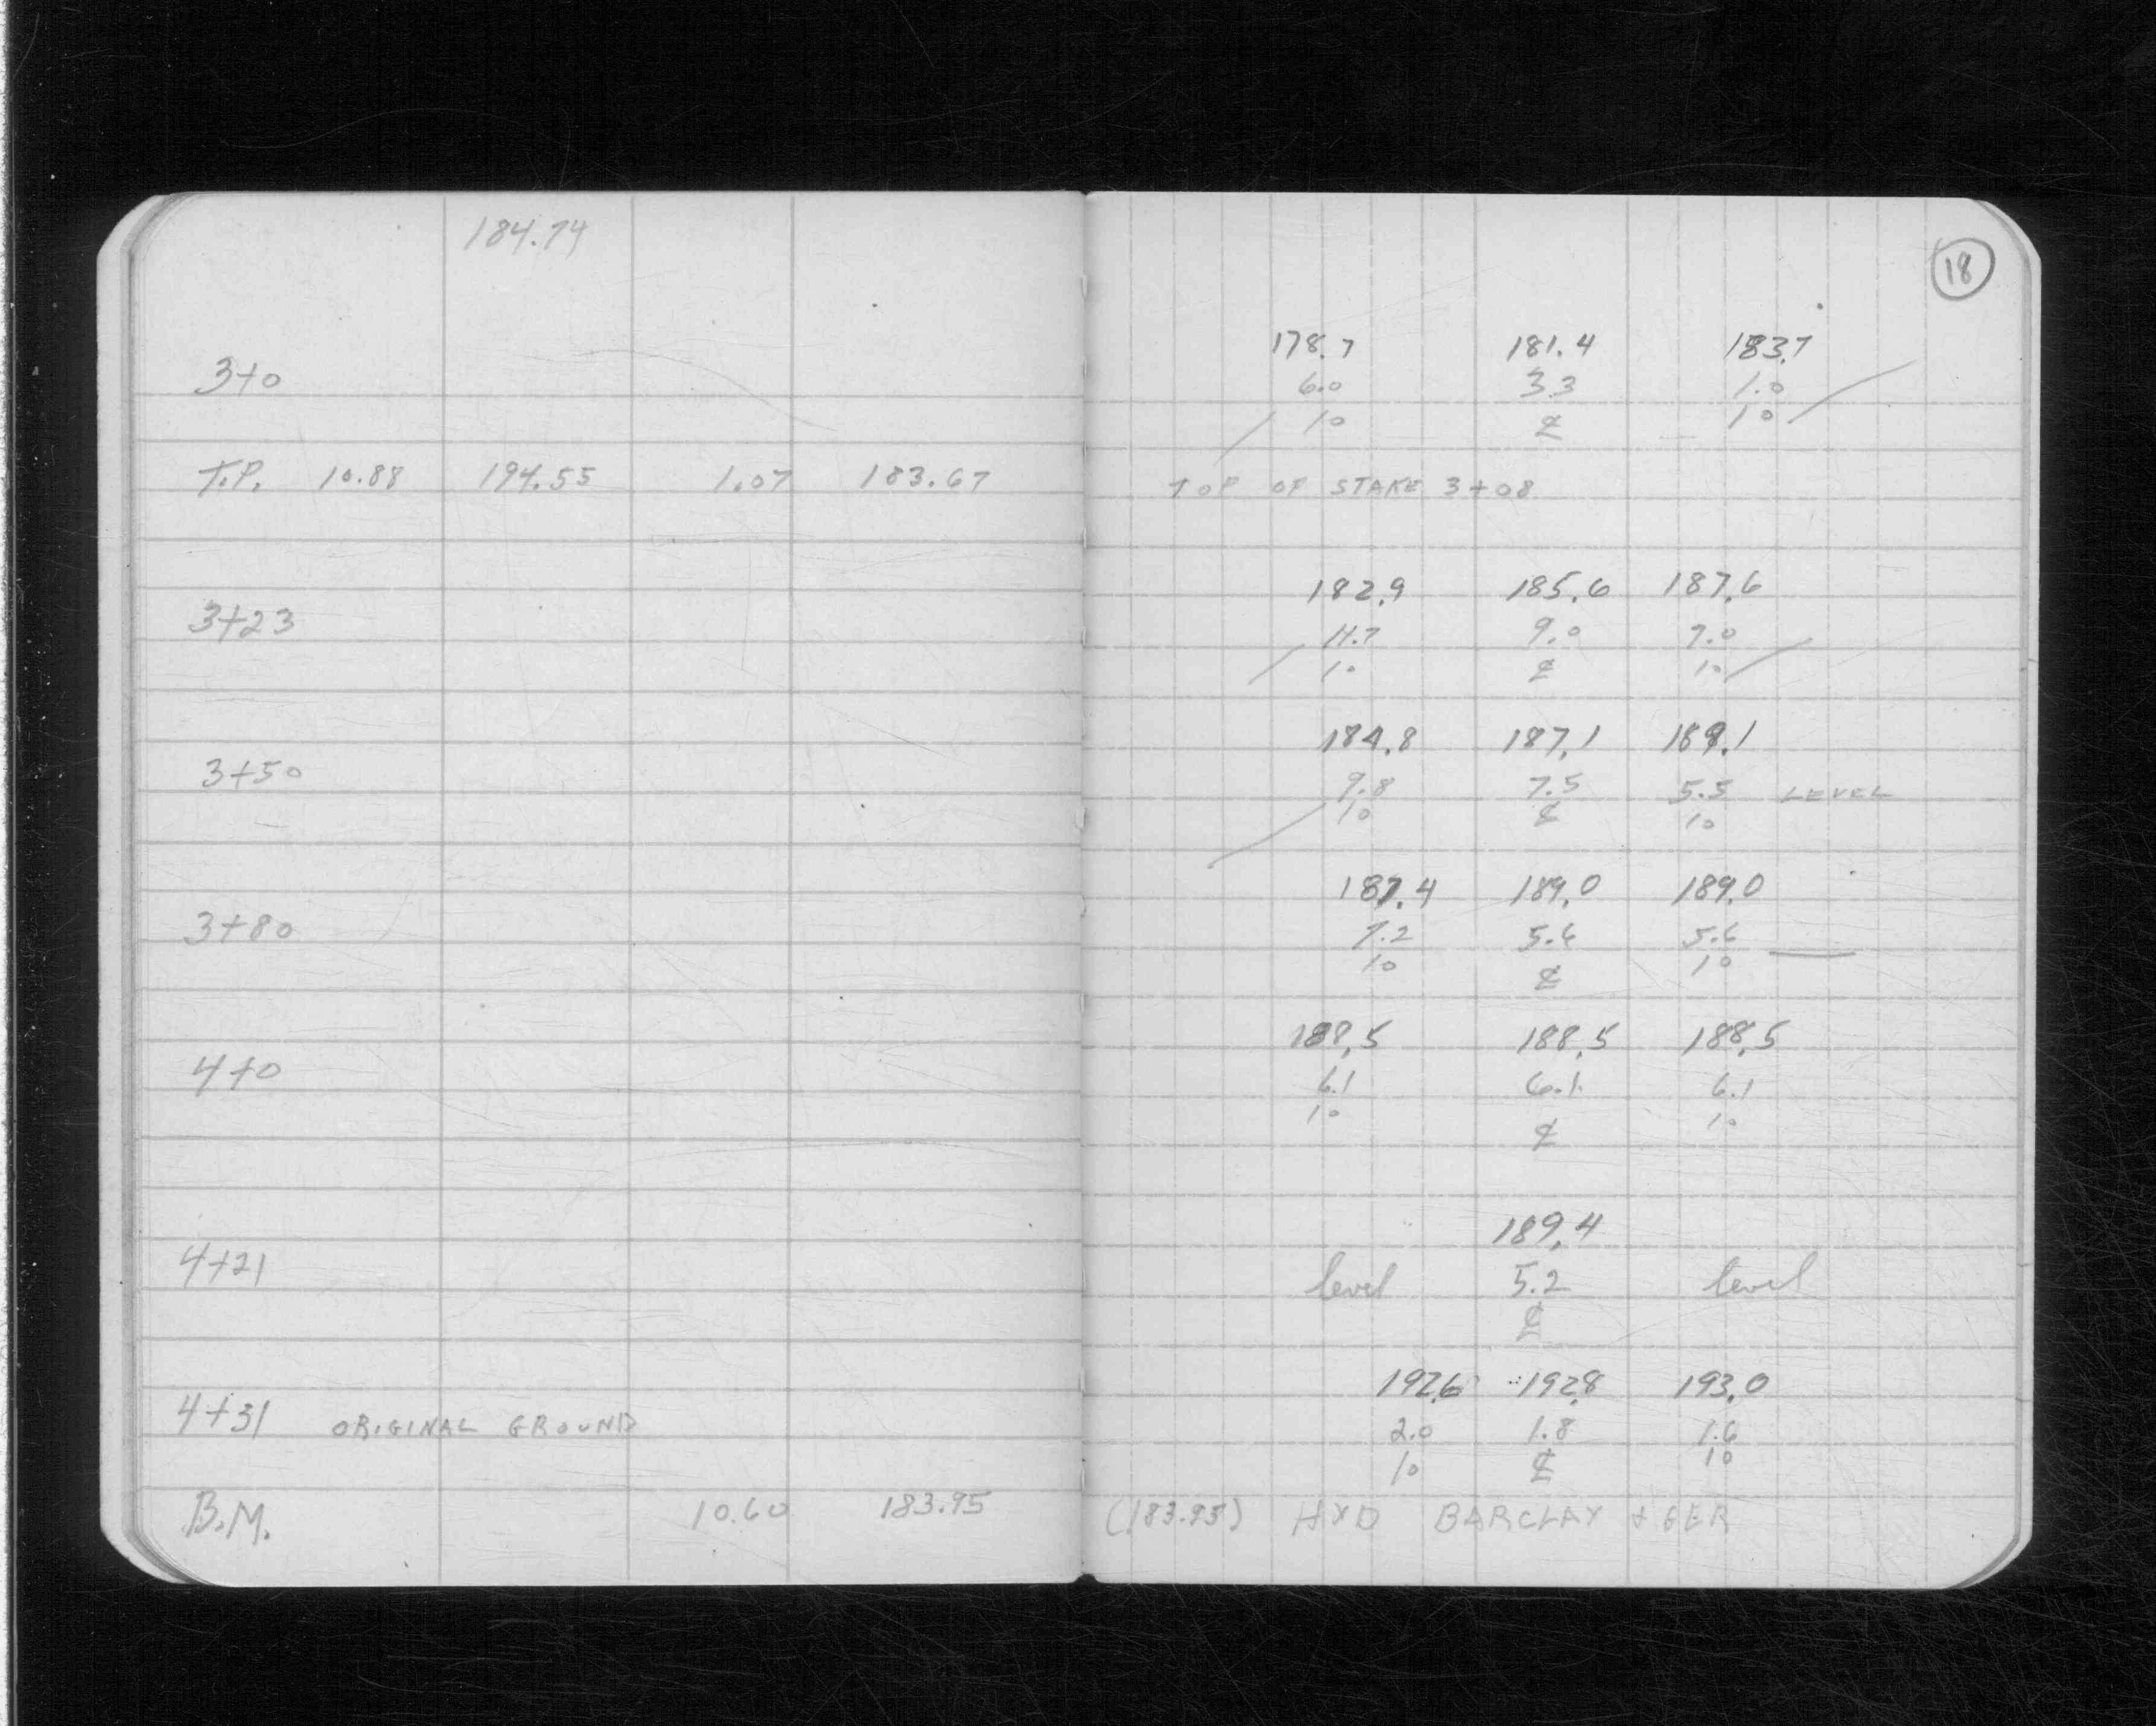 184.74
3+0
T.P. 10.88 194.55 1.07 183.67
3+23
3+50
3+80
4+0
4+21
4+31 ORIGINAL GROUND
B.M. 10.60 183.95
18
178.7 181.4 183.7
6.0 3.3 1.0
10 ℄ 10
TOP OF STAKE 3+08
182.9 185.6 187.6
11.7 9.0 7.0
10 ℄ 10
184.8 187.1 189.1
9.8 7.5 5.5 LEVEL
10 ℄ 10
187.4 189.0 189.0
7.2 5.6 5.6
10 ℄ 10
188.5 188.5 188.5
6.1 6.1 6.1
10 ℄ 10
189.4
level 5.2 level
℄
192.6 192.8 193.0
2.0 1.8 1.6
10 ℄ 10
(183.95) HYD BARCLAY + GER